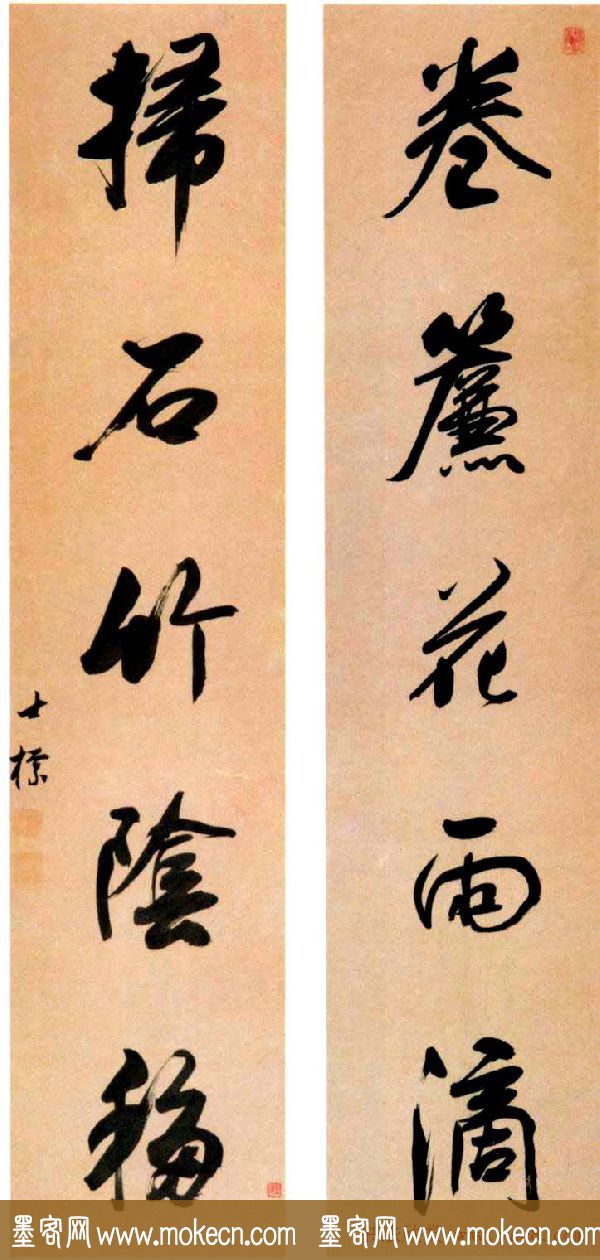 卷簾花雨滴
掃石竹陰移
士標
墨客网 www.mokecn.com
墨客网 www.mokecn.com